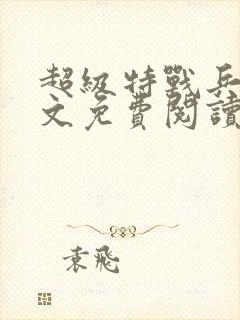 超級特戰兵
文免費閱讀
袁飛